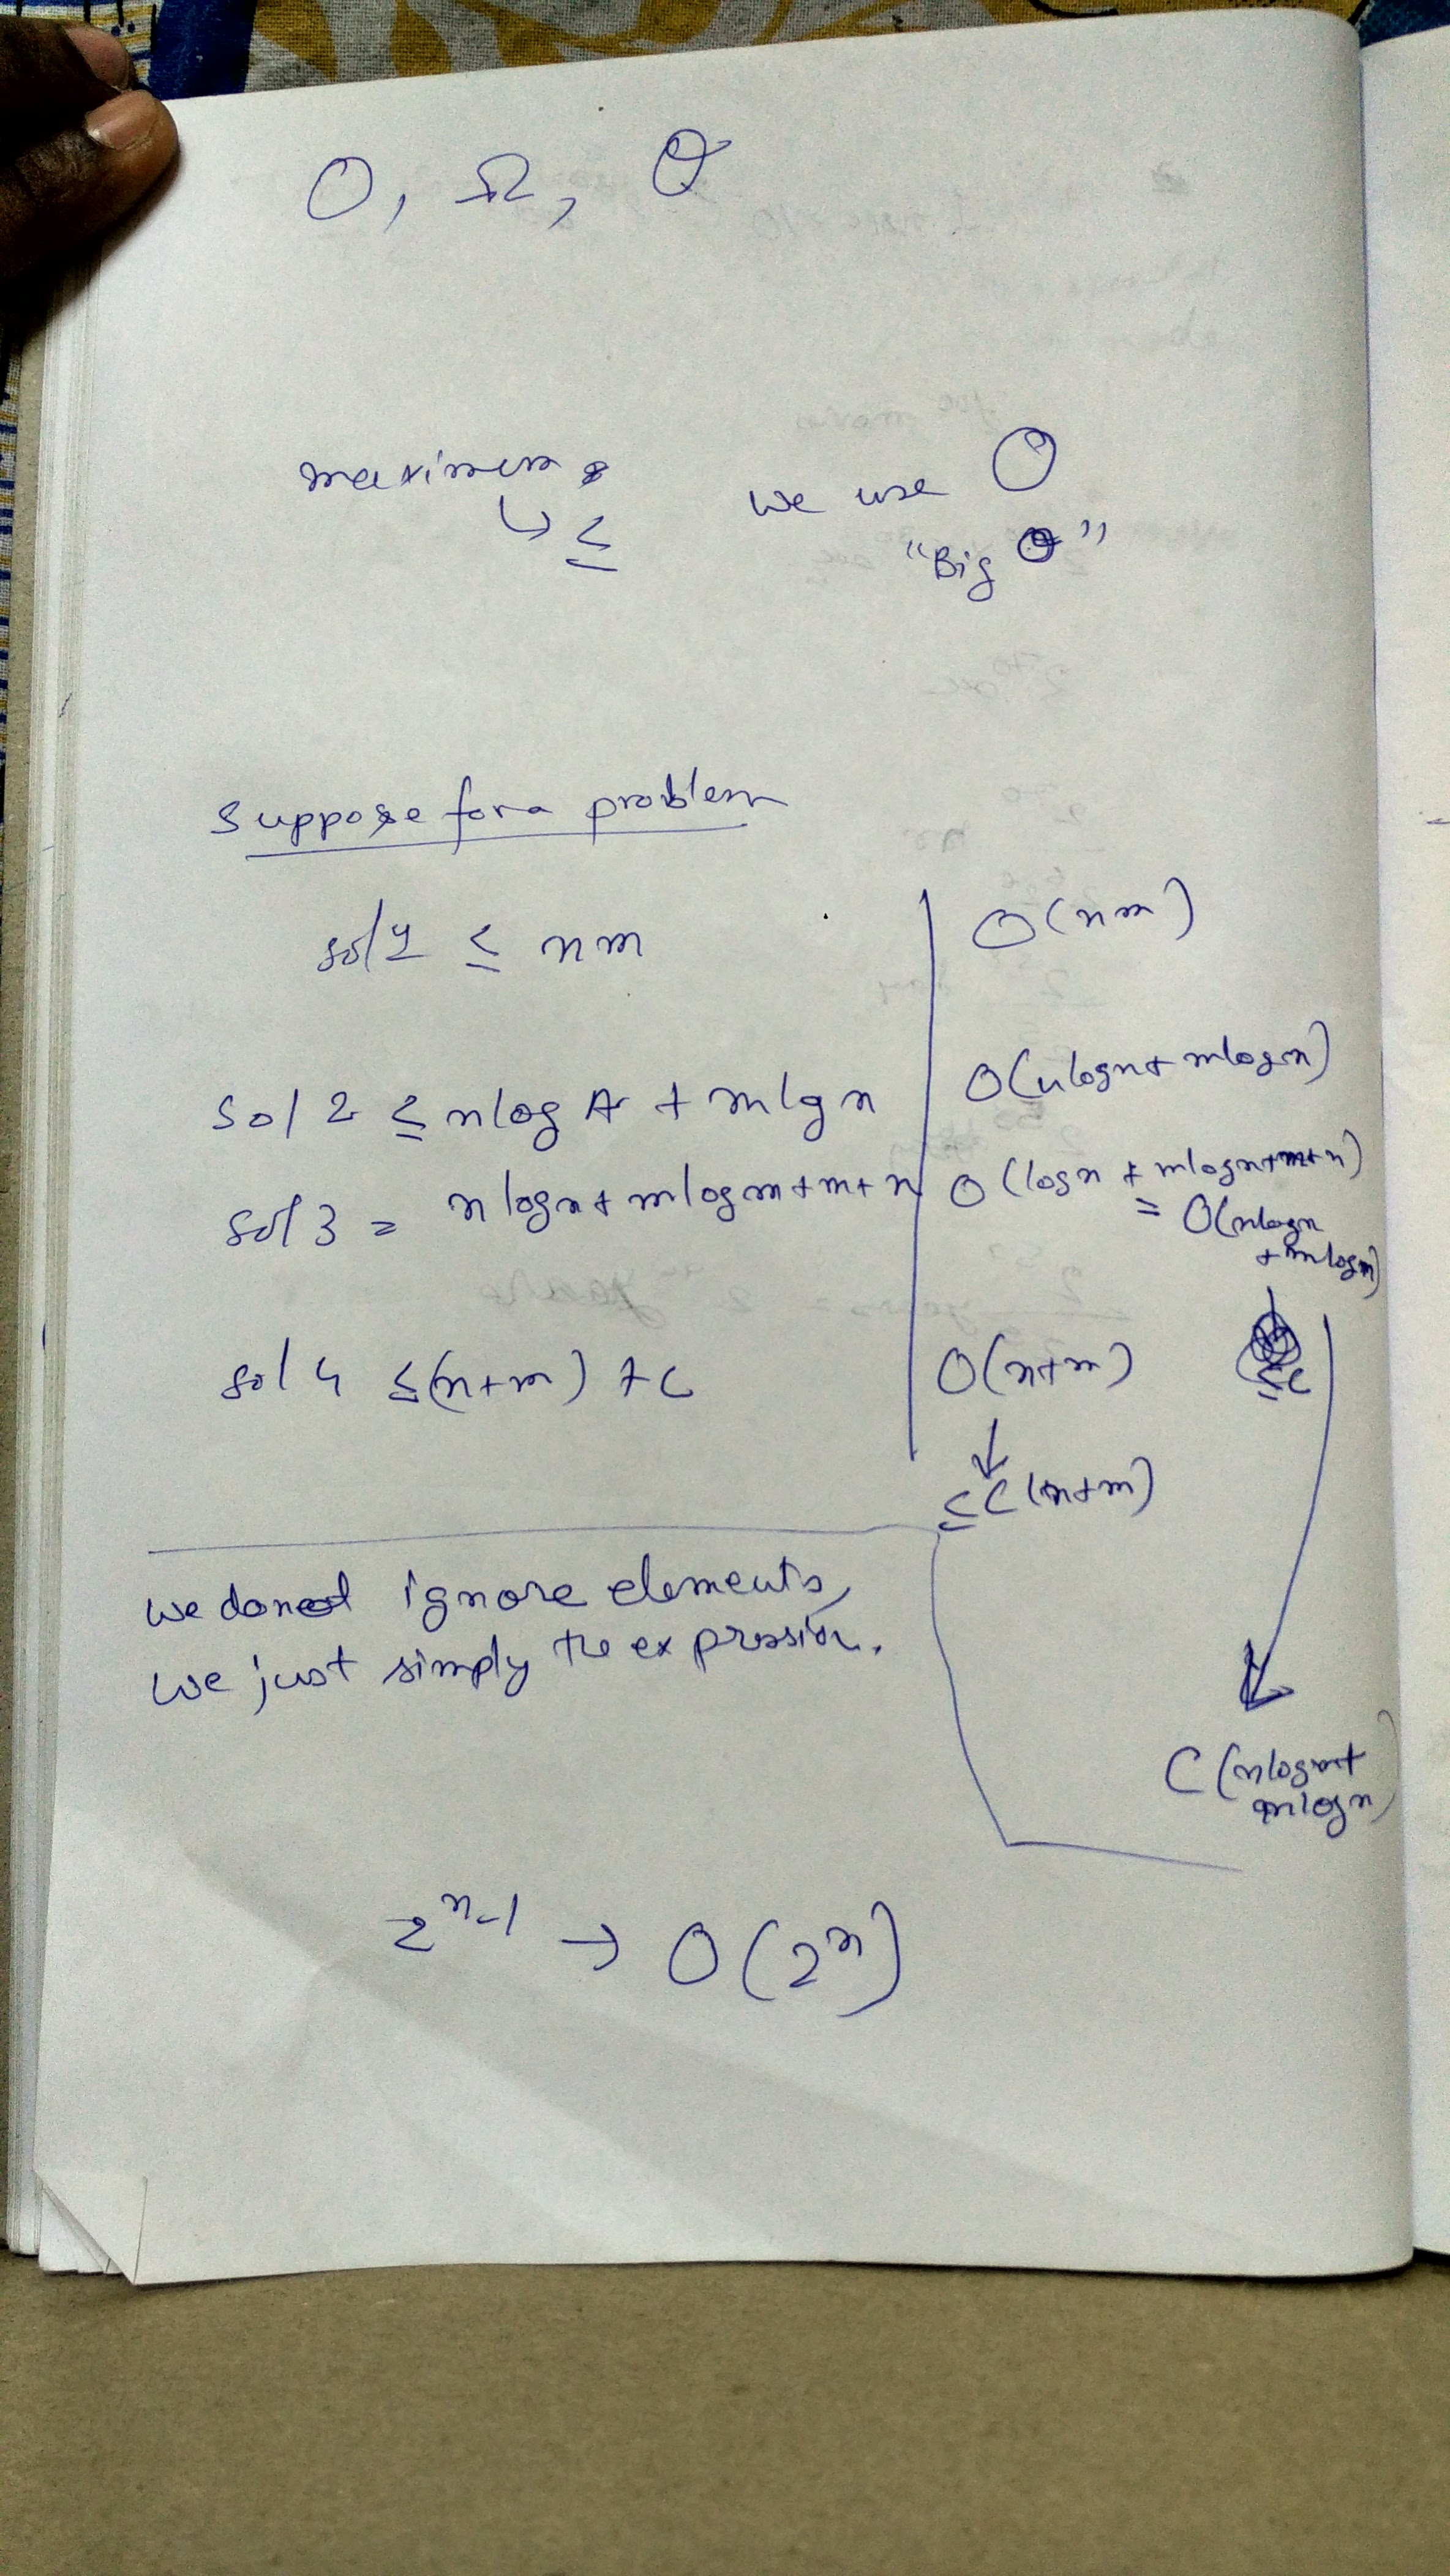 O, Ω, Θ
maximum
↳ ≤
we use O
"Big O"
Suppose for a problem
sol 1 ≤ nm | O(nm)
sol 2 ≤ nlog n + mlgn | O(nlogn + mlogn)
sol 3 = nlogn + mlogm + m + n | O(logn + mlogn+m+n)
= O(nlogn
+ mlogm)
sol 4 ≤ (n+m) + c | O(n+m)
≤c
↓
≤ C(n+m)
we donot ignore elements,
we just simply the expression.
C(nlogn+
mlogn)
2^n-1 → O(2^n)